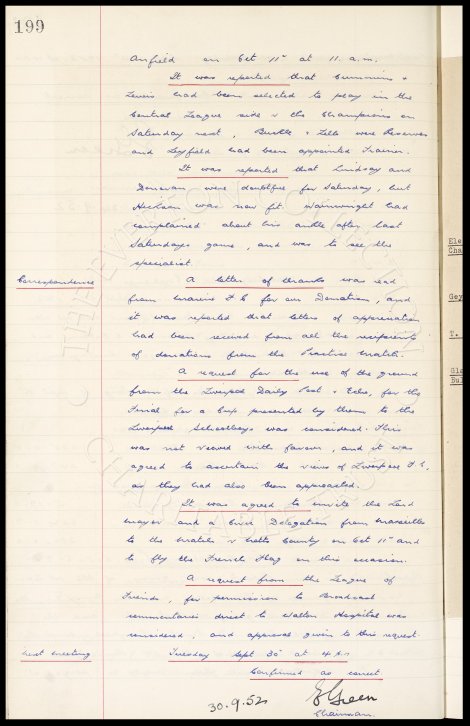 199
Anfield on Oct 11th at 11. a.m.
It was reported that Cummins &
Lewis had been selected to play in the
Central League side v the Champions on
Saturday next, Buckle & Lello were Reserves
and Leyfield had been appointed Trainer.
It was reported that Lindsay and
Donovan were doubtful for Saturday, but
Hickson was now fit. Wainwright had
complained about his ankle after last
Saturdays game, and was to see the
specialist.
Correspondence
A letter of thanks was read
from Marine F C for our Donation, and
it was reported that letters of appreciation
had been received from all the recipients
of donations from the Practice Match.
A request for the use of the ground
from the Liverpool Daily Post & Echo, for the
Final for a Cup presented by them to the
Liverpool Schoolboys was considered. This
was not viewed with favour, and it was
agreed to ascertain the views of Liverpool F.C,
as they had also been approached.
It was agreed to invite the Lord
Mayor and a Civic Delegation from Marseilles
to the Match v Notts County on Oct 11th and
to fly the French Flag on this occasion.
A request from the League of
Friends, for permission to Broadcast
commentaries direct to Walton Hospital was
considered, and approval given to this request.
Next Meeting
Tuesday Sept 30th at 4 p.m
Confirmed as correct
30.9.52
E Green
Chairman
Ele
Cha
Gey
T.
Gla
Dul